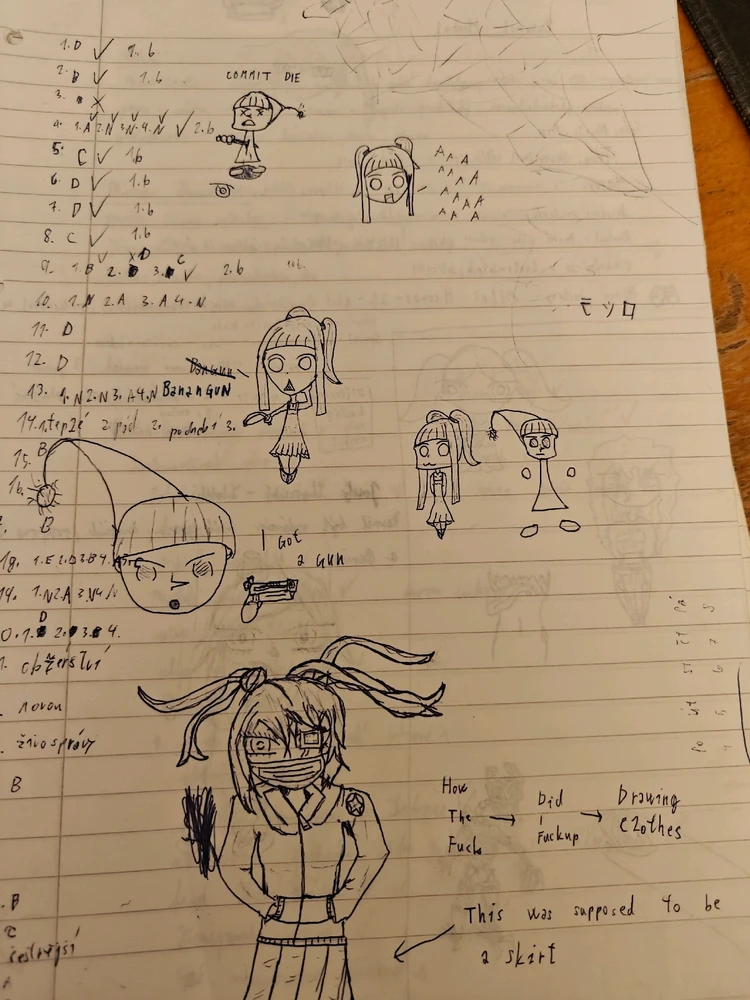 1. D ✓ 1.b
2. B ✓ 1.b
3. x
4. 1.A 2.N 3.N 4.N ✓ 2.b
5. C ✓ 1.b
6. D ✓ 1.b
7. D ✓ 1.b
8. C ✓ 1.b
9. 1.B 2. D 3. C ✓ 2.b
10. 1.N 2.A 3.A 4.N
11. D
12. D
13. 1.N 2.N 3.A 4.N
14. 2. 3.
15. B
16.
B
18. 1.E 2.D 3.B 4.
19. 1.N 2.A 3.N 4.N
0. 1. D 2. 3. 4.
obžerství
novou
živo správy
B
B
C
čestnější
COMMIT DIE
A A A
A A A
A A A A
A A A
モツロ
BananGUN
I Got
a Gun
Pá 8
čt 7
st 6
út 5
Po 4
How The Fuck → Did I Fuckup → Drawing Clothes
This was supposed to be
a skirt